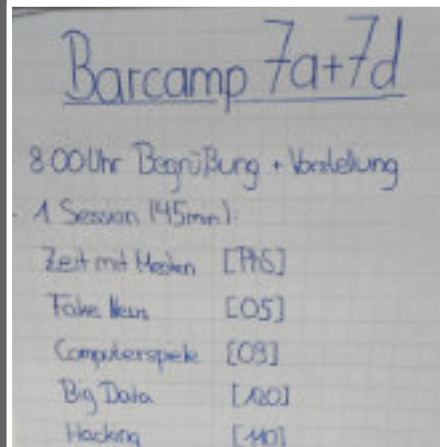 Barcamp 7a+7d
8:00 Uhr Begrüßung + Vorstellung
1 Session (45min):
Zeit mit Medien
Fake News [05]
Computerspiele [09]
Big Data [120]
Hacking [110]